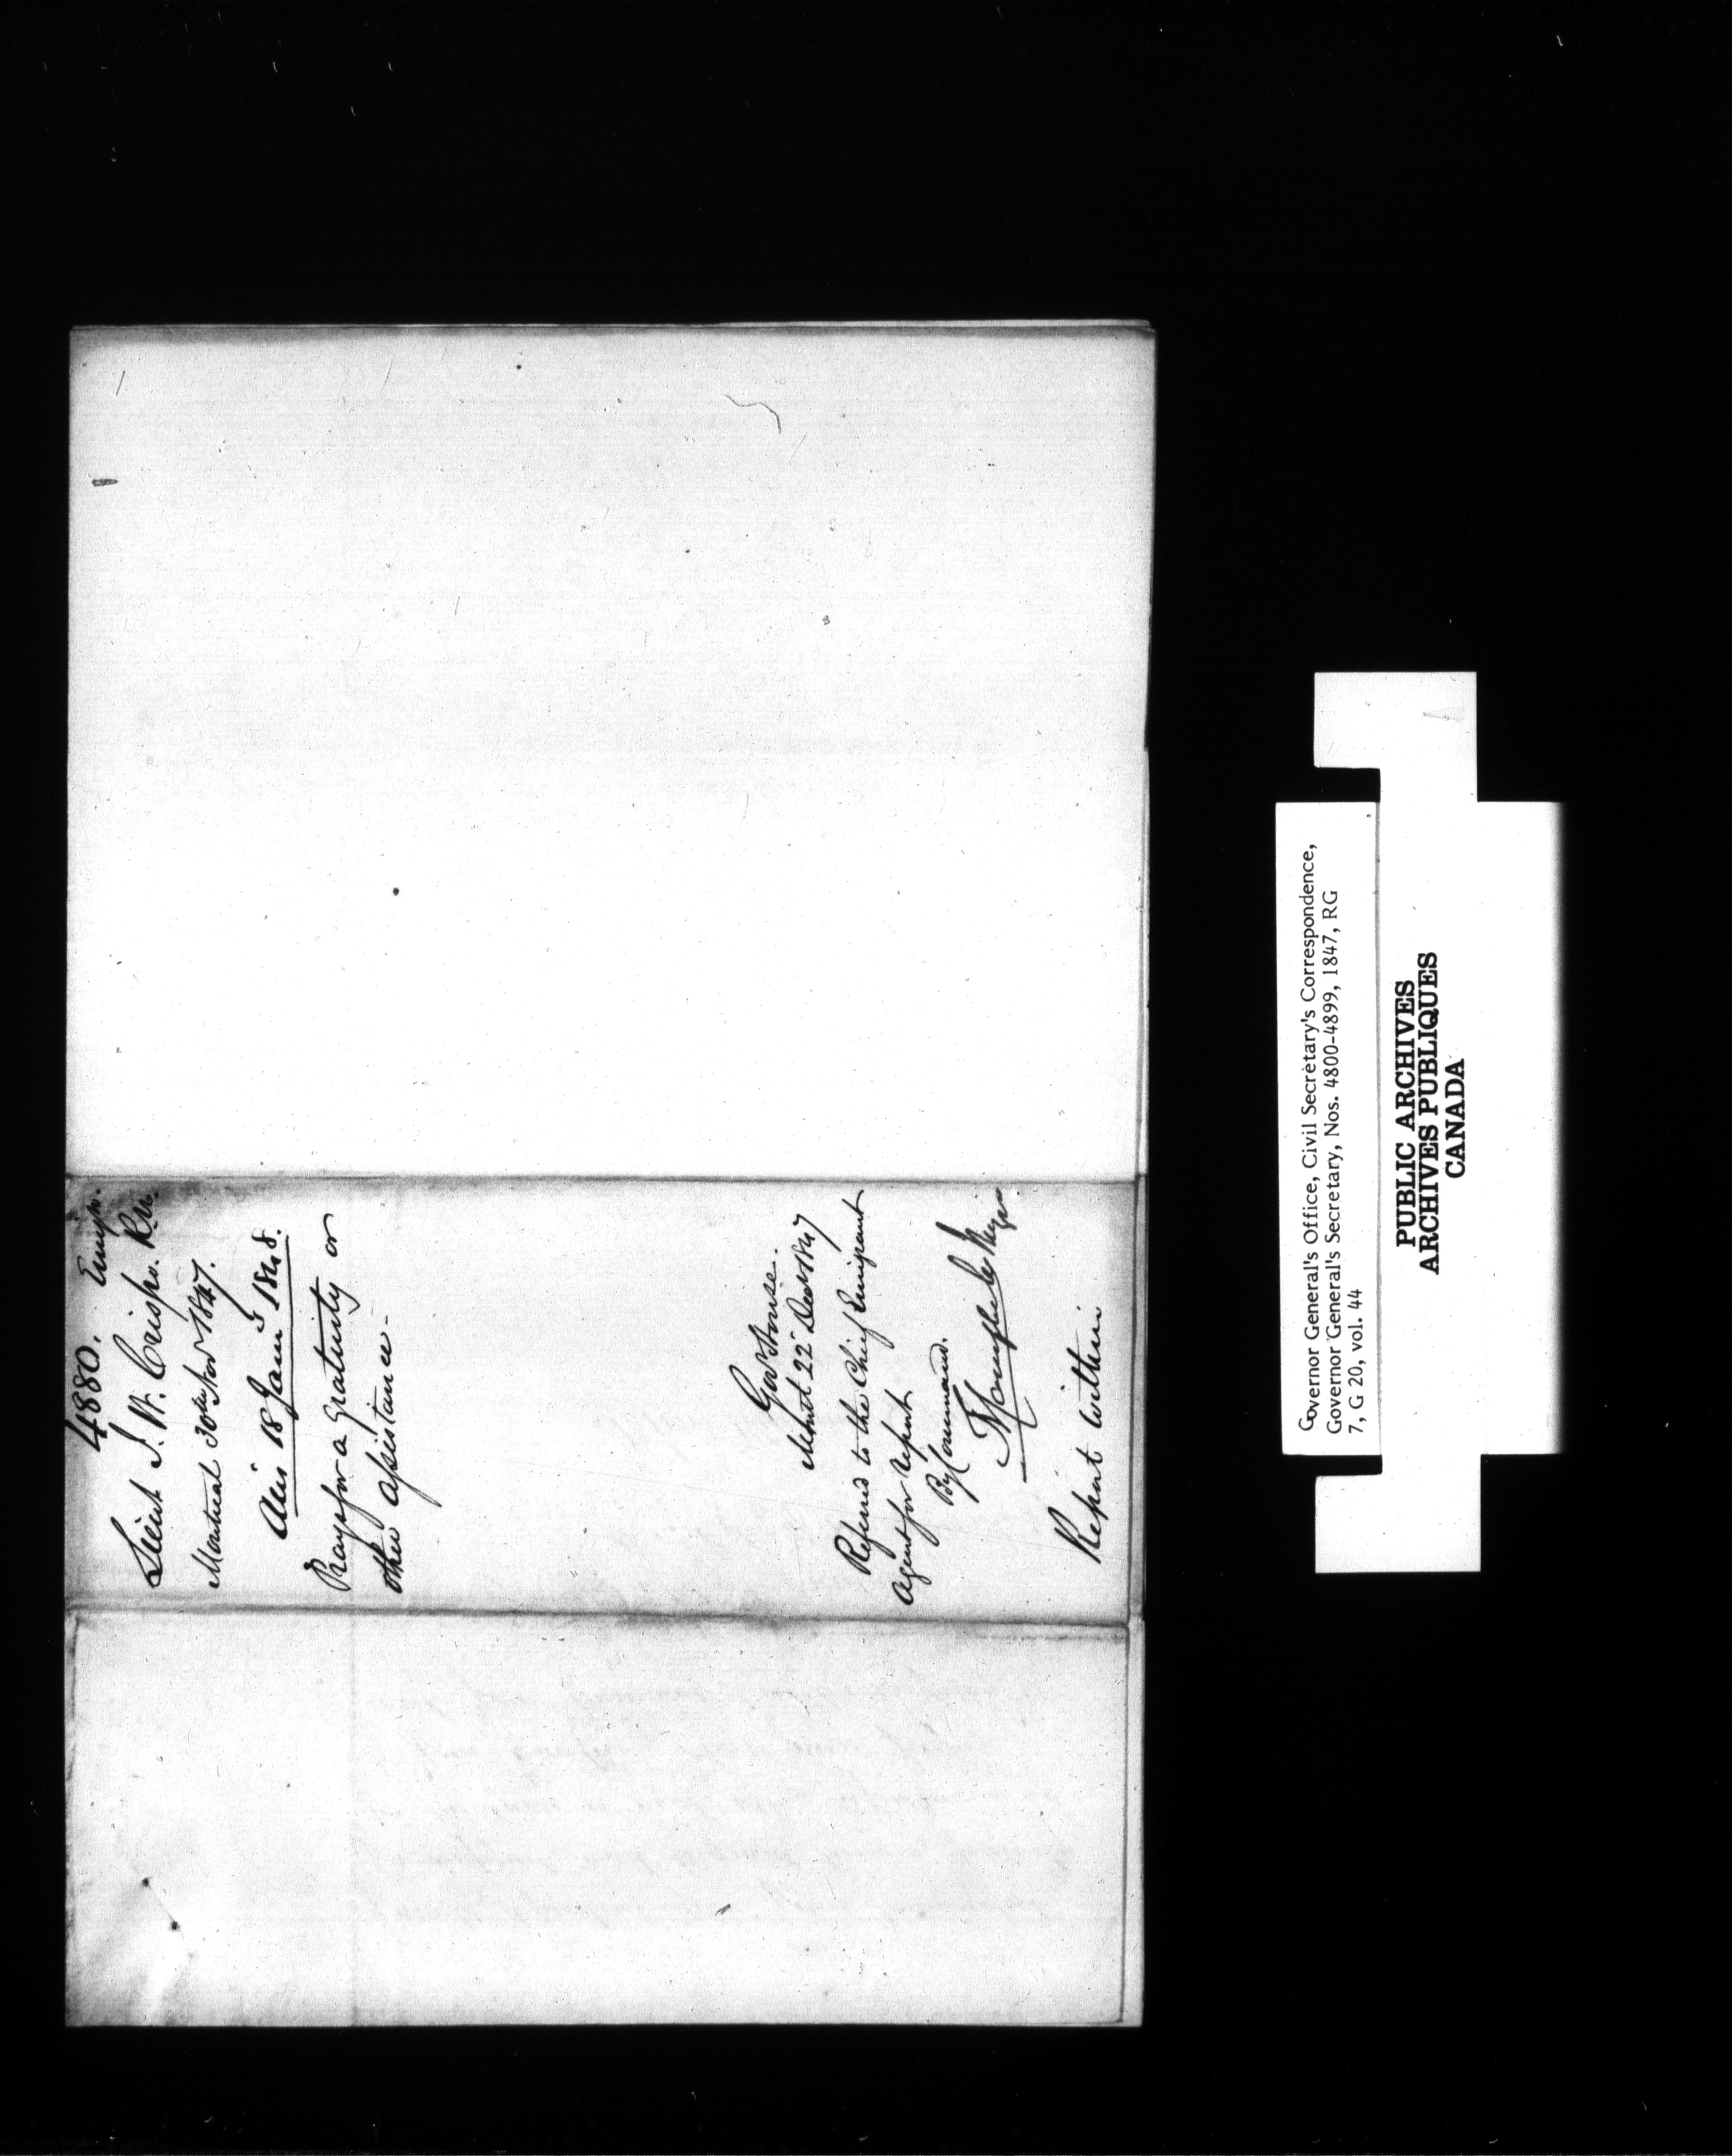 4880. Emign.
Lieut J. W. Crispo. R.N.
Montreal 30th Nov 1847.
Ans 18 Jany 1848.
Prays for a Gratuity or
other assistance -
Govt House.
Montl 22d Decr 1847
Referred to the Chief Emigrant
Agent for report
By Command.
Report within
Governor General's Office, Civil Secretary's Correspondence,
Governor General's Secretary, Nos. 4800-4899, 1847, RG
7, G 20, vol. 44
PUBLIC ARCHIVES
ARCHIVES PUBLIQUES
CANADA